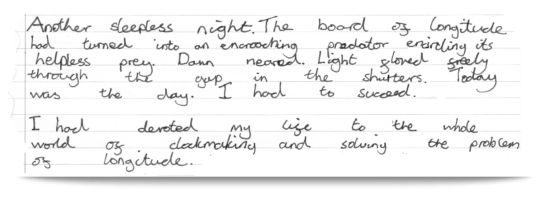 Another sleepless night. The board of longitude
had turned into an encroaching predator encircling its
helpless prey. Dawn neared. Light glowed
through the gap in the shutters. Today
was the day. I had to succeed.
I had devoted my life to the whole
world of clockmaking and solving the problem
of longitude.